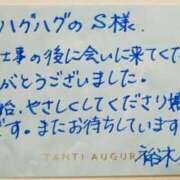 ハグハグのS様、
仕事の後に会いに来てくて
がとうございました。
始、やさしくしてくださり
です。またお待ちしています
TANTI AUGUR
裕木